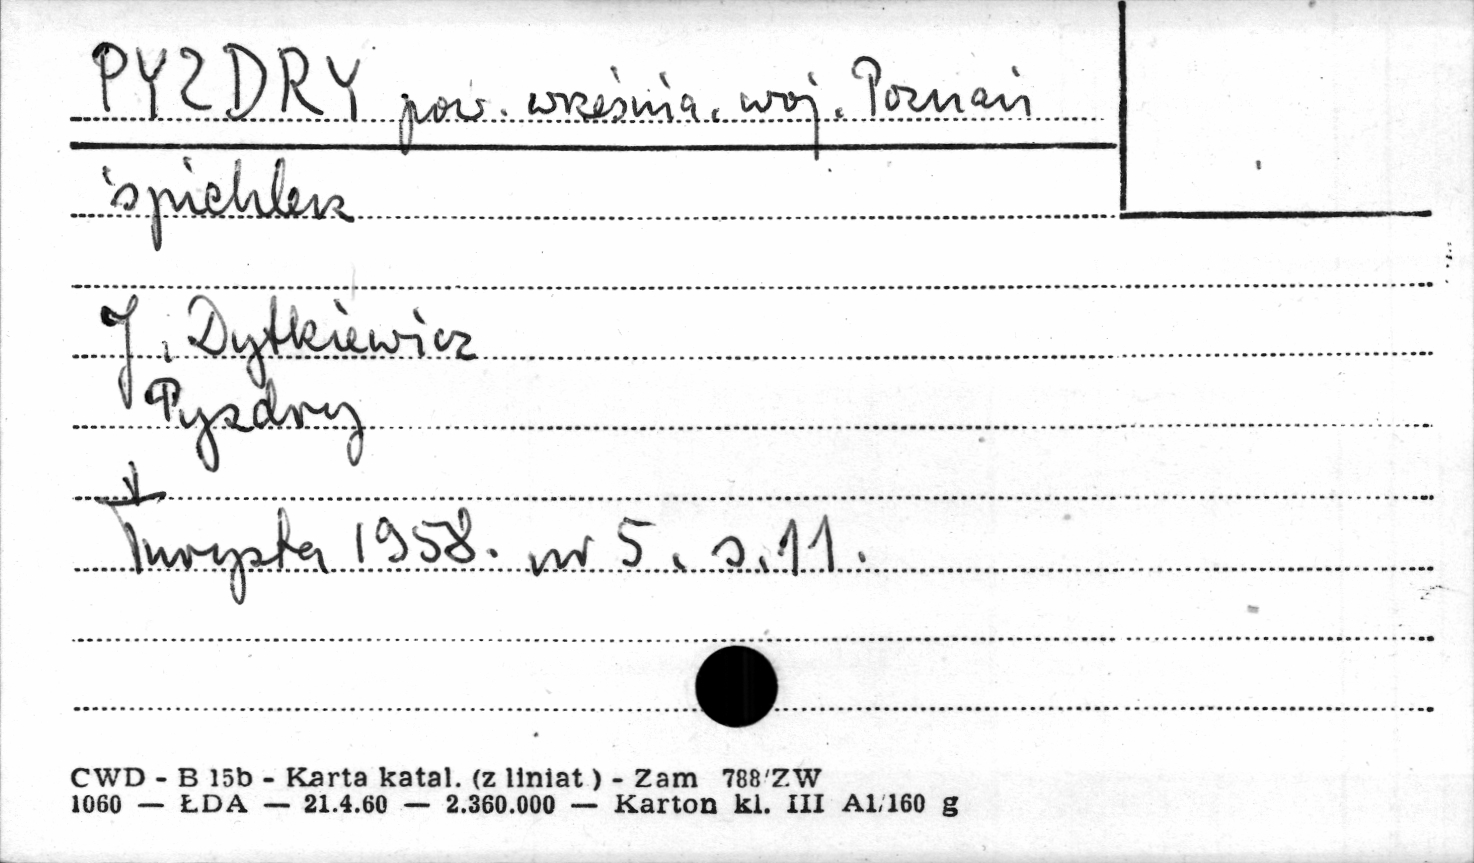 PYZDRY pow. września. woj. Poznań
śpichlerz
J. Dytkiewicz
Pyzdry
Turysta 1958. nr 5. s. 11.
CWD - B 15b - Karta katal. (z liniat ) - Zam 788/ZW
1060 — ŁDA — 21.4.60 — 2.360.000 — Karton kl. III A1/160 g